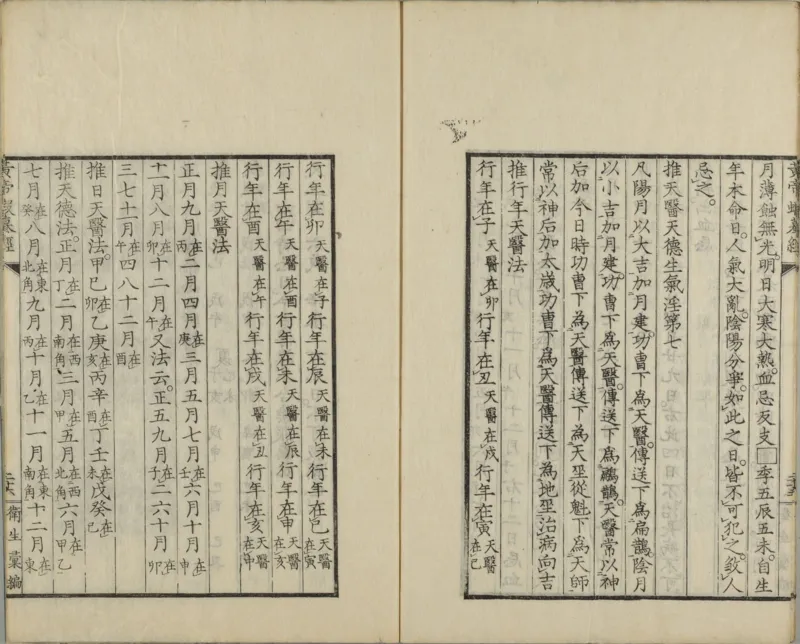 月薄蝕無光。明日大寒大熱。血忌反支□季五辰五未。自生
年本命日。人氣大亂。陰陽分爭。如此之日。皆不可犯之。敓人
忌之。
推天醫天德生氣淫第七
凡陽月以大吉加月建。功曹下爲天醫。傳送下爲扁鵲陰月
以小吉加月建。功曹下爲天醫。傳送下爲鶣鵲。天醫常以神
后加今日時功曹下爲天醫傳送下爲天巫從魁下爲天師
常以神后加太歲功曹下爲天醫傳送下爲地巫治病向吉
推行年天醫法
行年在子天醫在卯行年在丑天醫在戌行年在寅天醫在巳
行年在卯天醫在子行年在辰天醫在未行年在巳天醫在寅
行年在午天醫在酉行年在未天醫在辰行年在申天醫在亥
行年在酉天醫在午行年在戌天醫在丑行年在亥天醫在申
推月天醫法
正月九月在丙二月四月在庚三月五月七月在壬六月十月在申
十一月八月在卯十二月在午又法云。正五九月在子二六十月在卯
三七十一月在午四八十二月在酉
推日天醫法。甲巳在卯乙庚在亥丙辛在酉丁壬在未戊癸在巳
推天德法。正月在丁二月在西南角三月在甲五月在西北角六月在甲乙
七月在癸八月在東北角九月在丙十月在乙十一月在東南角十二月在東
衛生彙編